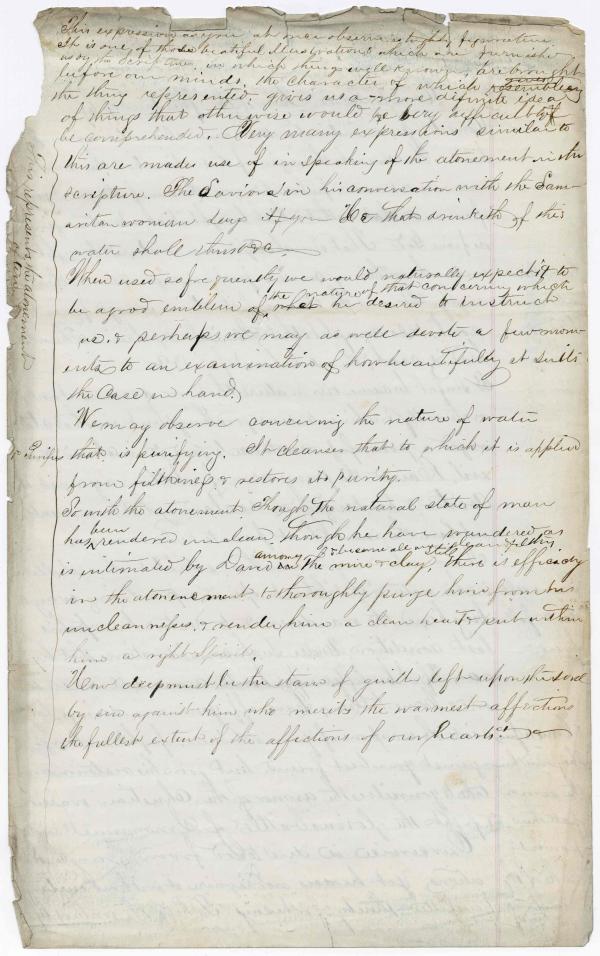 This expression as you at once observe is highly figurative
It is one of those beatiful Illustrations which are furnish
us by the scripture, in which things well known, are brought
before our minds, the character of which resembling
the thing represented. givis us a more difinite idea
of things that otherwise would be very difficult to
be comprehended. Very many expressions similar to
this are made use of in speaking of the atonement in the
scripture. The Saviour in his conversation with the Sam-
aritan woman says If you He that drinketh of this
water shall thirst &c
When used so frequently we would naturally expect it to
be a good emblem of the nature of that concerning which he desired to instruct
us. & perhaps we may as well devote a few mom-
ents to an examination of how beautifully it suits
the case in hand.
We may observe concerning the nature of water
that is purifying. It cleanses that to which it is applied
from filthiness & restores its purity.
So with the atonement. Though the natural state of man
has been rendered unclean, though he have wandered as
is intimated by David among the mire & clay, & become all filthy, there is efficacy
in the atonement to thoroughly purge him from his
uncleanness, & render him a clean heart & put within
him a right spirit.
How deep must be the stain of guilt left upon the soul
by sin against him who merits the warmest affections
the fullest extent of the affections of our hearts.
This represents the atonement
Purifies